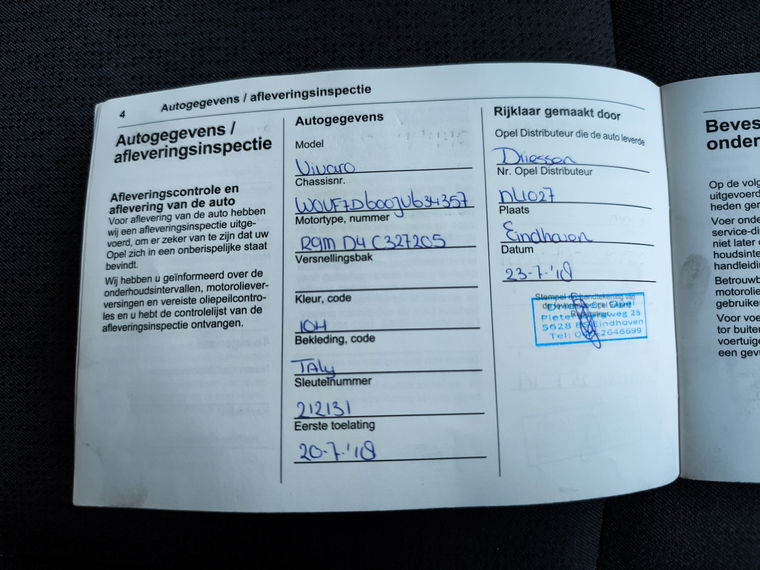 4 Autogegevens / afleveringsinspectie
Autogegevens /
afleveringsinspectie
Afleveringscontrole en
aflevering van de auto
Voor aflevering van de auto hebben
wij een afleveringsinspectie uitge-
voerd, om er zeker van te zijn dat uw
Opel zich in een onberispelijke staat
bevindt.
Wij hebben u geïnformeerd over de
onderhoudsintervallen, motoroliever-
versingen en vereiste oliepeilcontro-
les en u hebt de controlelijst van de
afleveringsinspectie ontvangen.
Autogegevens
Model
Vivaro
Chassisnr.
W0VF7D600JV634357
Motortype, nummer
R9M D4 C327205
Versnellingsbak
Kleur, code
10H
Bekleding, code
TALY
Sleutelnummer
212131
Eerste toelating
20-7-'18
Rijklaar gemaakt door
Opel Distributeur die de auto leverde
Driessen
Nr. Opel Distributeur
NL1027
Plaats
Eindhoven
Datum
23-7-'18
Stempel en handtekening van
Opel
weg 25
5628 Eindhoven
Tel: 2646699
Beves
onder
Op de volg
uitgevoerd
heden ger
Voor onde
service-di
niet later
houdsinte
handleidi
Betrouwb
motorolie
gebruike
Voor voe
tor buiten
voertuige
een gevo